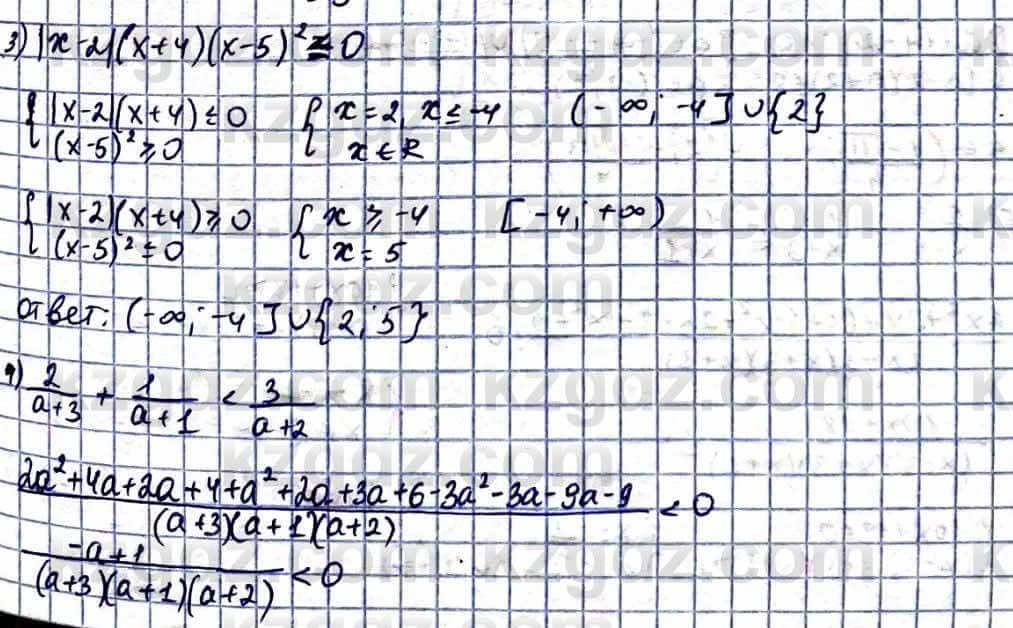 3) |x-2|(x+4)(x-5)² ≤ 0
{ |x-2|(x+4) ≤ 0 { x=2, x ≤ -4 (-∞; -4] ∪ {2}
(x-5)² ≥ 0 x ∈ R
{ |x-2|(x+4) ≥ 0 { x ≥ -4 [-4; +∞)
(x-5)² ≤ 0 x = 5
Ответ: (-∞; -4] ∪ {2; 5}
4) 2/(a+3) + 1/(a+1) < 3/(a+2)
(2a²+4a+2a+4+a²+2a+3a+6-3a²-3a-9a-9)/((a+3)(a+1)(a+2)) < 0
(-a+1)/((a+3)(a+1)(a+2)) < 0
kzgdz.com